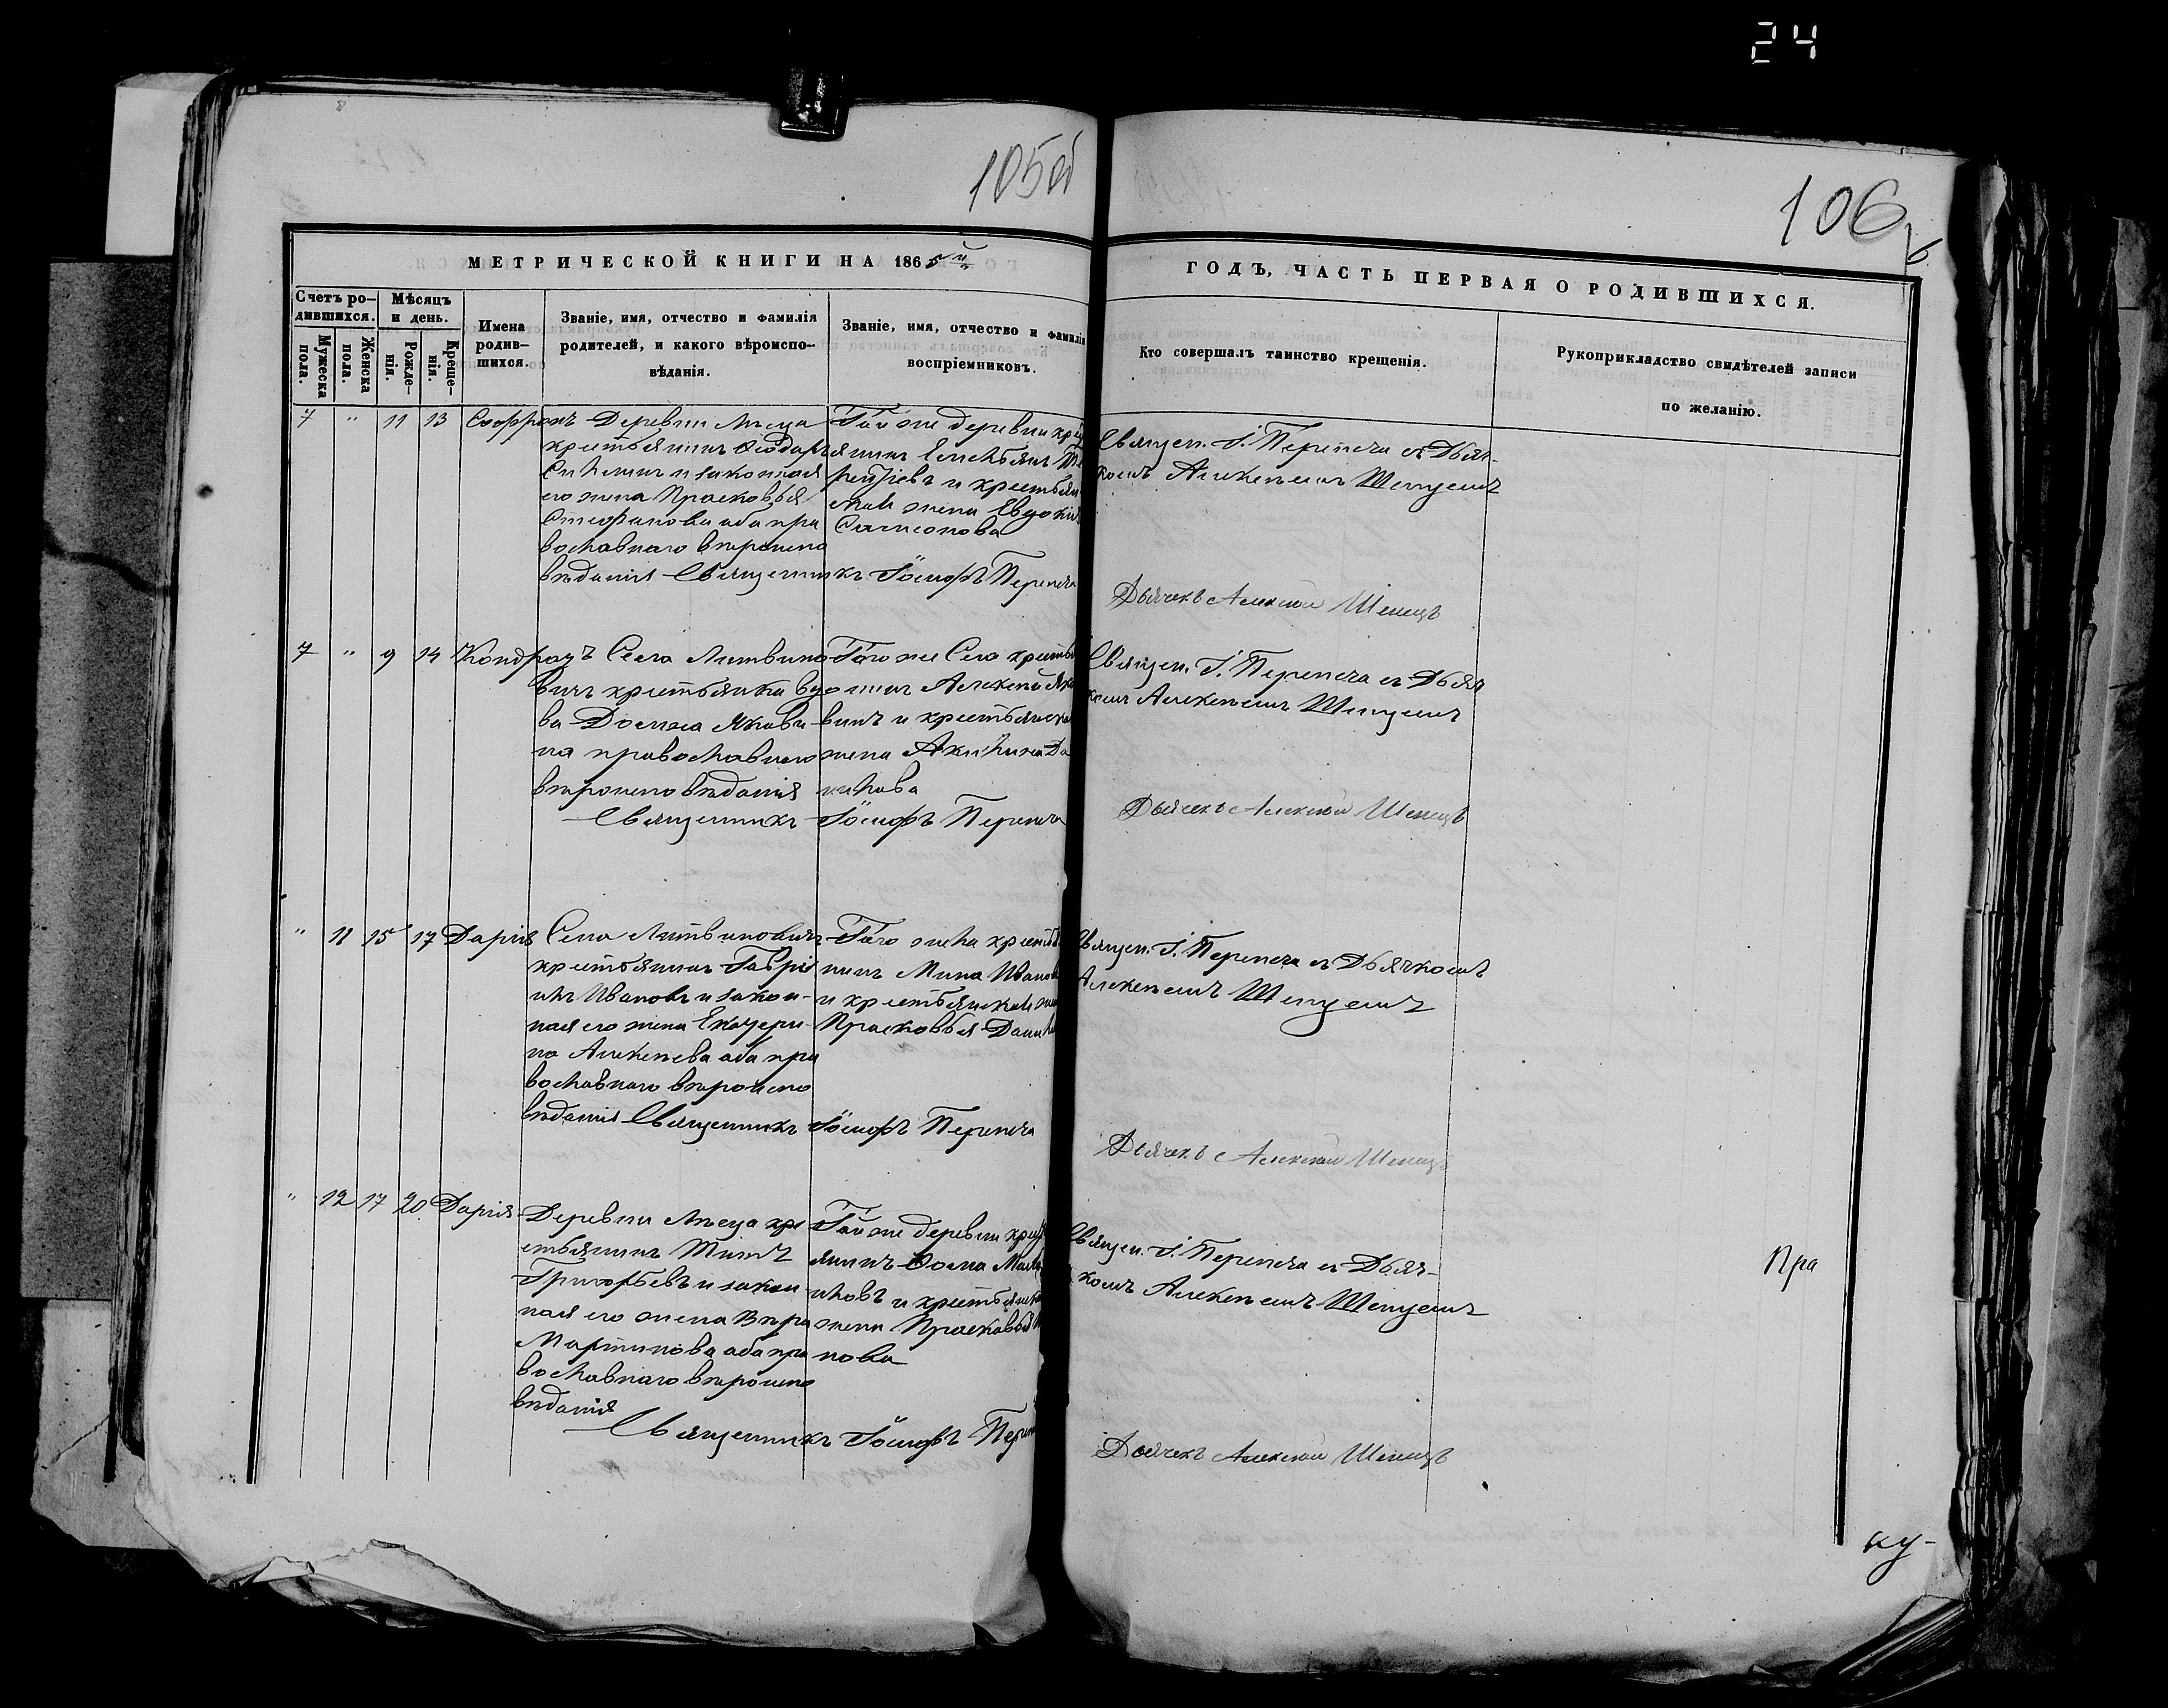 24
105об
106
МЕТРИЧЕСКОЙ КНИГИ НА 1865й
ГОДЪ, ЧАСТЬ ПЕРВАЯ О РОДИВШИХСЯ.
Счетъ ро-
дившихся.
Мужеска
пола.
Женска
пола.
Мѣсяцъ
и день.
Рожде-
нія.
Креще-
нія.
Имена
родив-
шихся.
Званіе, имя, отчество и фамилія
родителей, и какого вѣроиспо-
вѣданія.
Званіе, имя, отчество и фамилія
воспріемниковъ.
Кто совершалъ таинство крещенія.
Рукоприкладство свидѣтелей записи
по желанію.
7 " 11 13 Софронъ
Деревни
крестьянинъ Ѳеодоръ
и законная
его жена Прасковья
Стефанова оба пра
вославнаго вѣроиспо
вѣданія Священникъ Іосифъ Перепеча
Той же деревни
и
жена Евдокія
Самсонова
Священ. І. Перепеча съ Дьяч-
комъ Алексѣемъ
Дьячекъ Алексѣй
7 " 9 14 Кондратъ
Села Литвино
вичъ крестьянка вдо
ва Домна Якови-
на православнаго
вѣроисповѣданія
Священникъ Іосифъ Перепеча
Того же Села
Алексѣй
и
жена Акилина Да
нилова
Священ. І. Перепеча съ Дьяч
комъ Алексѣемъ
Дьячекъ Алексѣй
" 11 15 17 Дарія
Села Литвиновичъ
крестьянинъ Гаврі
илъ Ивановъ и закон-
ная его жена Екатери-
на Алексѣева оба пра
вославнаго вѣроиспо
вѣданія Священникъ Іосифъ Перепеча
Того
нинъ Мина
и крестьянская
Прасковья
Священ. І. Перепеча съ Дьячкомъ
Алексѣемъ
Дьячекъ Алексѣй
" 12 17 20 Дарія
Деревни кре
стьянинъ Титъ
Григорьевъ и закон-
ная его жена Вѣра
Мартинова оба пра
вославнаго вѣроиспо
вѣданія
Священникъ Іосифъ
Той же деревни
янинъ Ѳома
и
жена Прасковья
нова
Священ. І. Перепеча съ Дьяч-
комъ Алексѣемъ
Дьячекъ Алексѣй
Пра
ку-